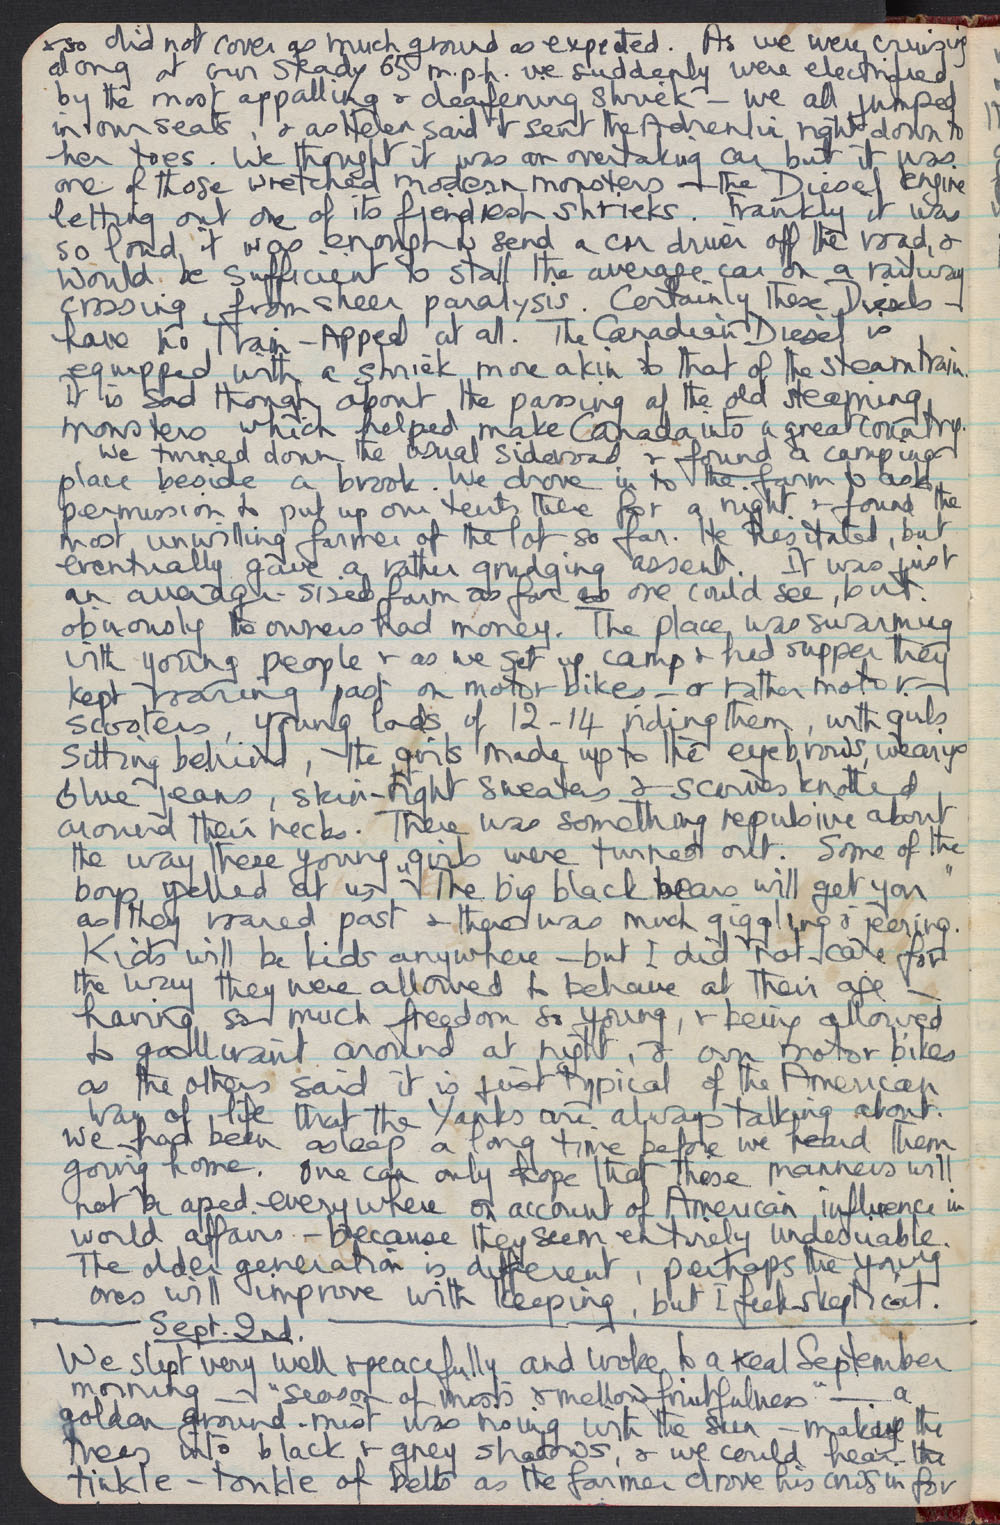 & so did not cover as much ground as expected. As we were cruizing
along at our steady 65 m.p.h. we suddenly were electrified
by the most appalling & deafening shriek - we all jumped
in our seats, & as Helen said it sent the Adrenlin right down to
her toes. We thought it was an overtaking car but it was
one of those wretched modern monsters - the Diesel engine
letting out one of its fiendish shrieks. Frankly it was
so loud it was enough to send a car driver off the road, &
would be sufficient to stall the average car on a railway
crossing, from sheer paralysis. Certainly these Diesels -
have no Train-Appeal at all. The Canadian Diesel is
equipped with a shriek more akin to that of the steam train.
It is sad though about the passing of the old steaming
monsters which helped make Canada into a great country.
We turned down the usual sideroad & found a camping
place beside a brook. We drove in to the farm to ask
permission to put up our tents there for a night & found the
most unwilling farmer of the lot so far. He hesitated, but
eventually gave a rather grudging assent. It was just
an average-sized farm as far as one could see, but
obviously the owners had money. The place was swarming
with young people & as we set up camp & had supper they
kept roaring past on motor bikes - or rather motor -
scooters, young lads of 12-14 riding them, with girls
sitting behind, the girls made up to the eyebrows, wearing
blue jeans, skin-tight sweaters & scarves knotted
around their necks. There was something repulsive about
the way these young girls were turned out. Some of the
boys yelled at us "The big black bears will get you"
as they roared past & there was much giggling & jeering.
Kids will be kids anywhere - but I did not care for
the way they were allowed to behave at their age -
having so much freedom so young, & being allowed
to gallivant around at night, & own motor bikes
as the others said it is just typical of the American
way of life that the Yanks are always talking about.
We had been asleep a long time before we heard them
going home. One can only hope that these manners will
not be aped everywhere on account of American influence in
world affairs - because they seem entirely undesirable.
The older generation is different, perhaps the young
ones will improve with keeping, but I feel skeptical.
Sept. 2nd.
We slept very well & peacefully and woke to a real September
morning - "season of mists & mellow fruitfulness" - a
golden ground-mist was rising with the sun - making the
trees into black & grey shadows, & we could hear the
tinkle-tonkle of bells as the farmer drove his cows in for